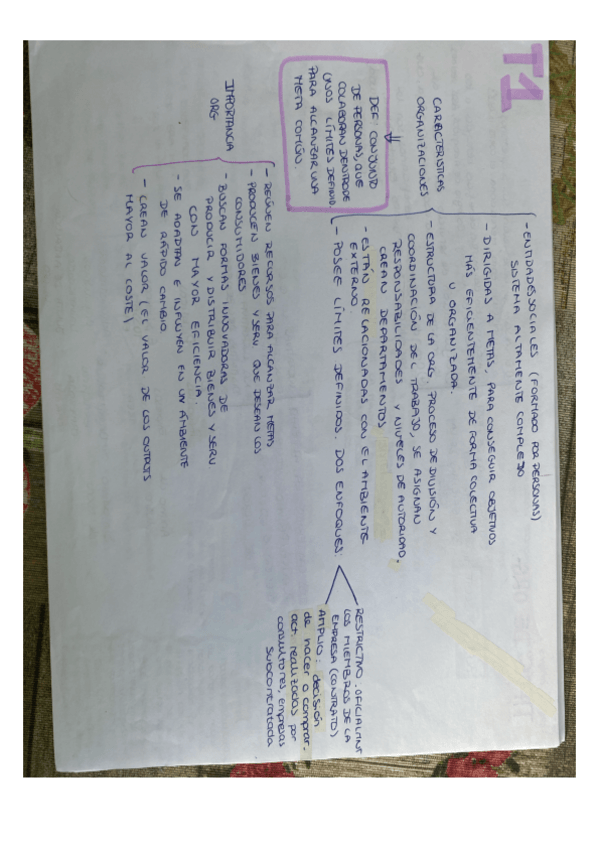 T1
CARACTERISTICAS
ORGANIZACIONES
- ENTIDADES SOCIALES (FORMADO POR PERSONAS)
SISTEMA ALTAMENTE COMPLEJO
- DIRIGIDAS A METAS, PARA CONSEGUIR OBJETIVOS
MÁS EFICIENTEMENTE DE FORMA COLECTIVA
U ORGANIZADOR.
- ESTRUCTURA DE LA ORG. PROCESO DE DIVISIÓN Y
COORDINACIÓN DEL TRABAJO, SE ASIGNAN
RESPONSABILIDADES Y NIVELES DE AUTORIDAD,
CREAN DEPARTAMENTOS
- ESTÁN RELACIONADAS CON EL AMBIENTE
EXTERNO.
- POSEE LÍMITES DEFINIDOS. DOS ENFOQUES:
RESTRICTIVO. OFICIALMNT
LOS MIEMBROS DE LA
EMPRESA (CONTRATO)
AMPLIO: decisión
de hacer o comprar.
act realizadas por
consultores, empresas
subcontratada
DEF CONJUNTO
DE PERSONAS, QUE
COLABORAN DENTRO DE
UNOS LÍMITES DEFINID.
PARA ALCANZAR UNA
META COMÚN.
IMPORTANCIA
ORG
- REÚNEN RECURSOS PARA ALCANZAR METAS
- PRODUCEN BIENES Y SERV QUE DESEAN LOS
CONSUMIDORES
- BUSCAN FORMAS INNOVADORAS DE
PRODUCIR Y DISTRIBUIR BIENES Y SERV
CON MAYOR EFICIENCIA.
- SE ADAPTAN E INFLUYEN EN UN AMBIENTE
DE RÁPIDO CAMBIO
- CREAN VALOR (EL VALOR DE LOS OUTPUTS
MAYOR AL COSTE)